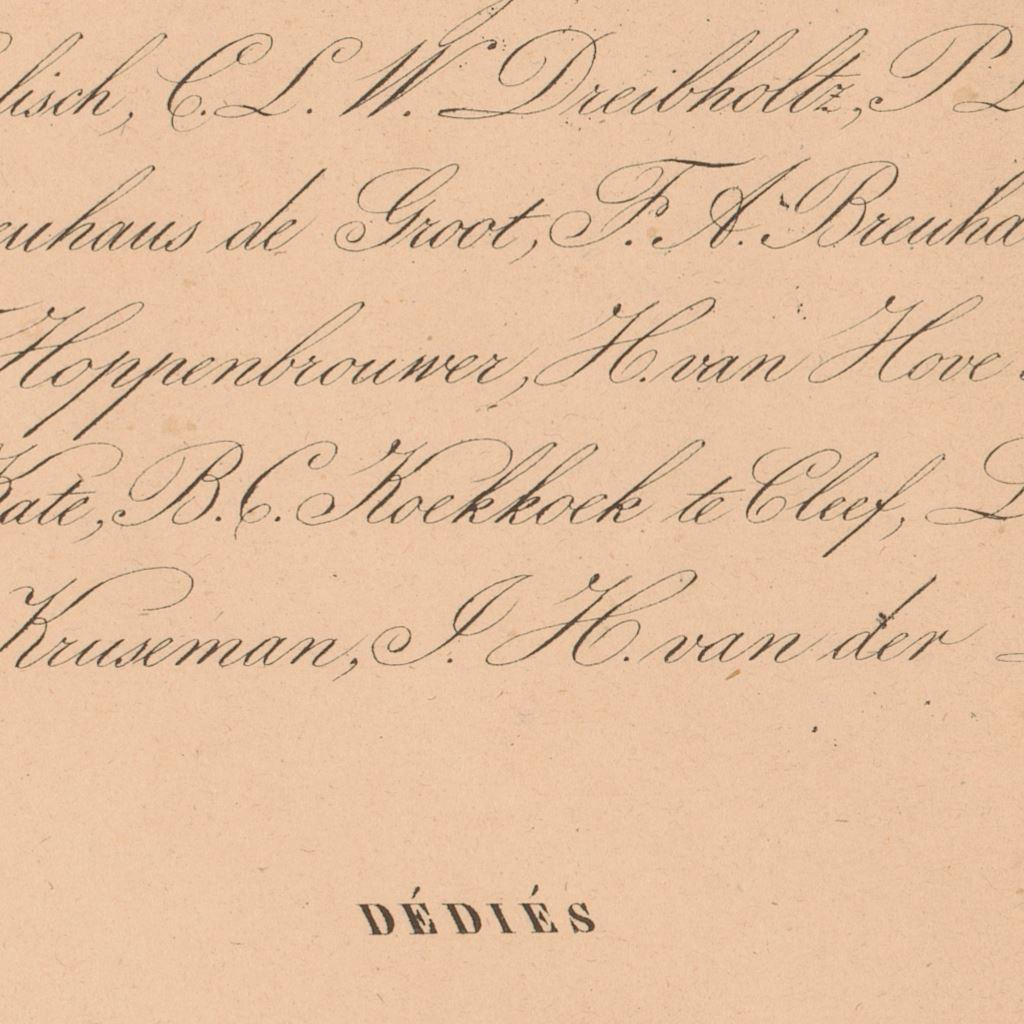 lisch, C. L. W. Dreibholtz, P L
euhaus de Groot, F. A. Breuha
Hoppenbrouwer, H. van Hove
Kate, B. C. Koekkoek te Cleef, L
Kruseman, J. H. van der
DÉDIÉS